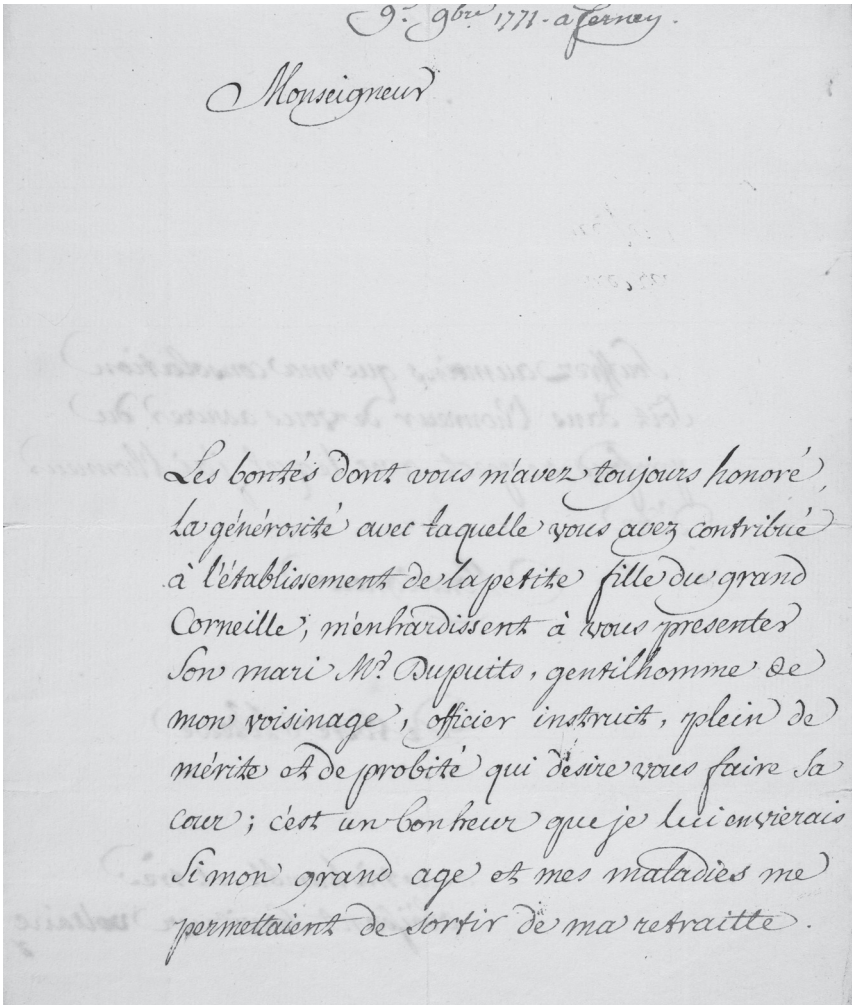 9.e 9bre 1771. a ferney.
Monseigneur
Les bontés dont vous m'avez toujours honoré,
la générosité avec laquelle vous avez contribué
à l'établissement de la petite fille du grand
Corneille, m'enhardissent à vous presenter
son mari Mr. Dupuits, gentilhomme de
mon voisinage, officier instruit, plein de
mérite et de probité qui désire vous faire sa
cour; c'est un bonheur que je lui envierais
si mon grand age et mes maladies me
permettaient de sortir de ma retraitte.